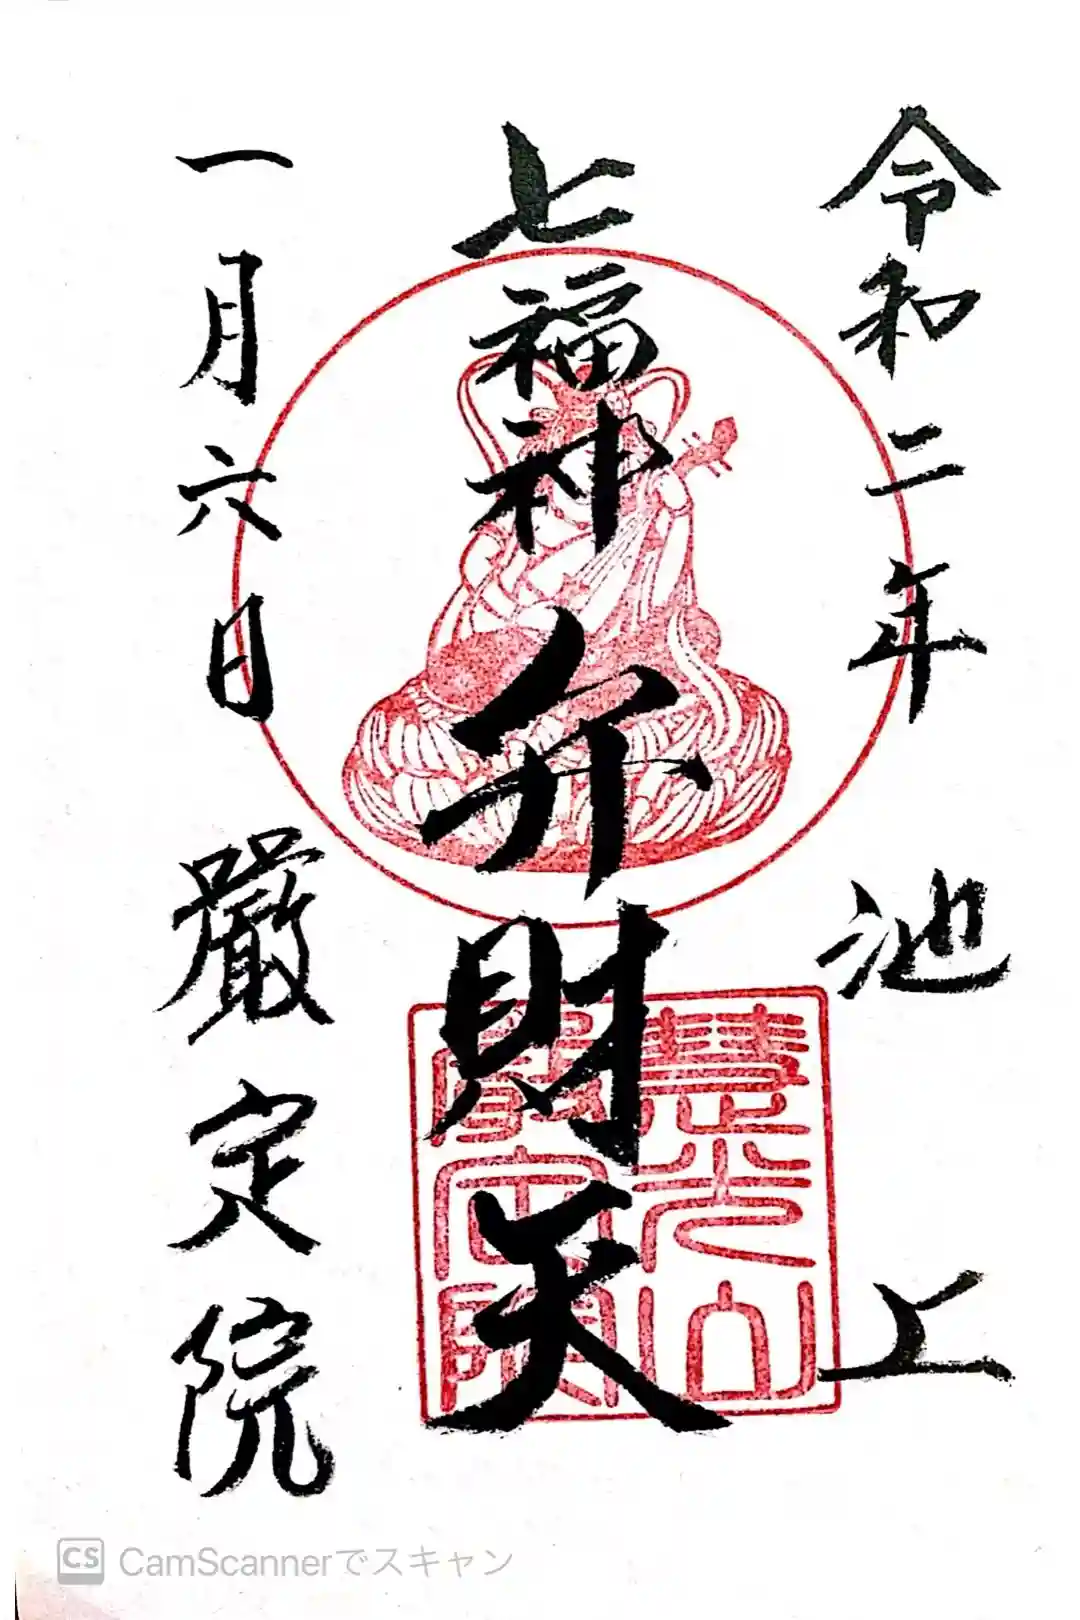 令和二年 池上
七福神 弁財天
一月六日 嚴定院
慧光山
嚴定院
CS CamScannerでスキャン